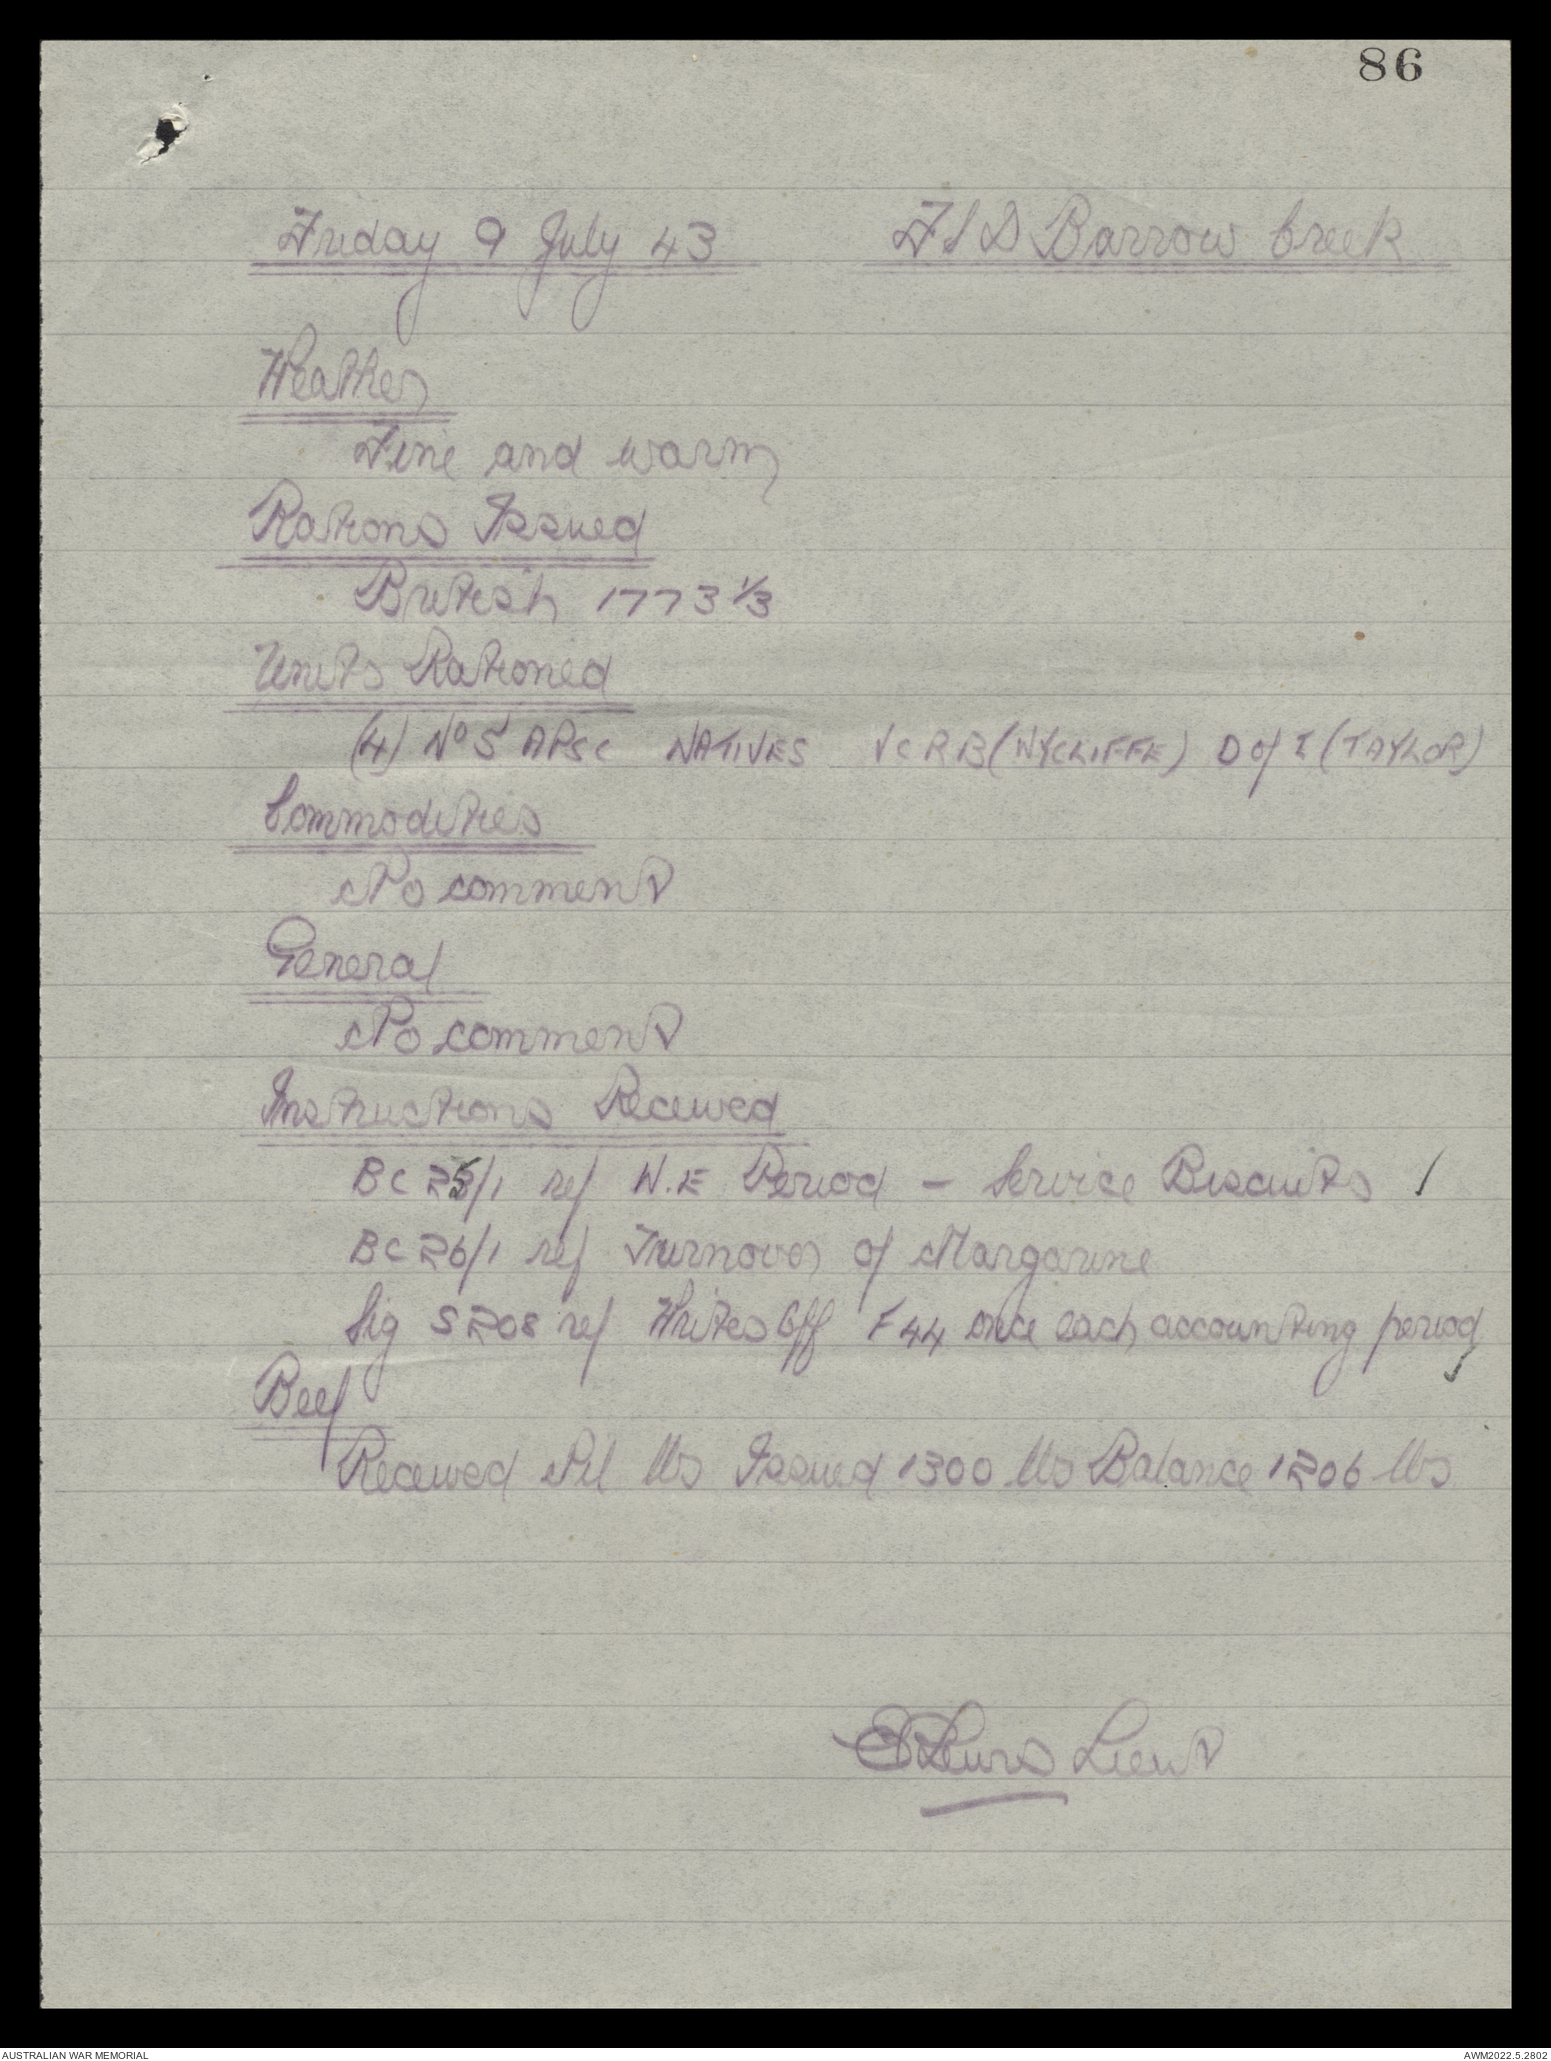 86
Friday 9 July 43 FSD Barrow Creek
Weather
Fine and warm
Rations Issued
British 1773 1/3
Units Rationed
(4) No 5 APSC NATIVES VCRB (WYCLIFFE) D of I (TAYLOR)
Commodities
No comment
General
No comment
Instructions Received
BC 25/1 ref W.E Period - Service Biscuits /
BC 26/1 ref Turnover of Margarine
Sig S208 ref Writes Off F44 once each accounting period
Beef
Received Nil lbs Issued 1300 lbs Balance 1206 lbs
Lieut
AUSTRALIAN WAR MEMORIAL AWM2022.5.2802